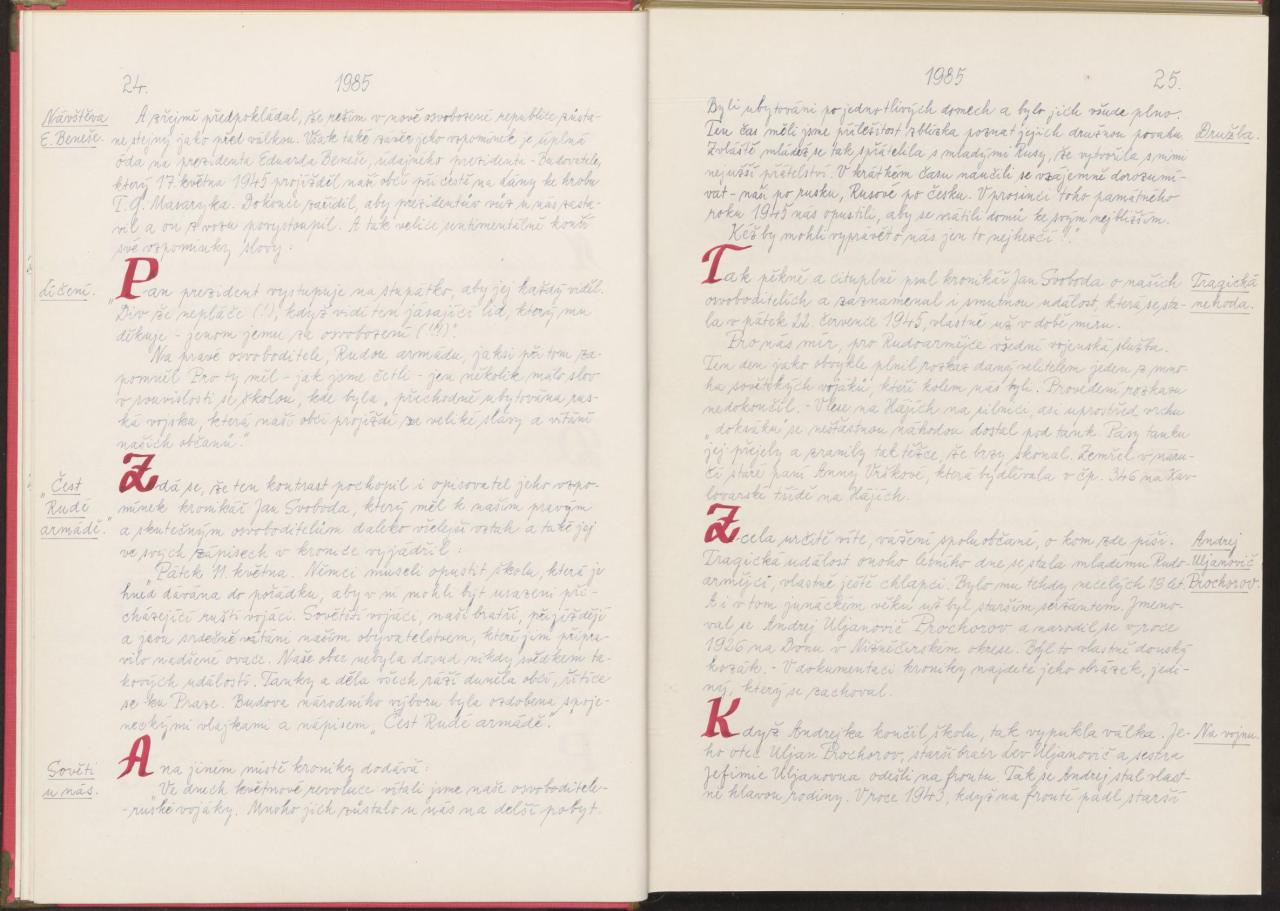 24. 1985
Návštěva
E. Beneše.
A zřejmě předpokládal, že režim v nově osvobozené republice zůsta-
ne stejný jako před válkou. Však také závěr jeho vzpomínek je úplná
óda na prezidenta Eduarda Beneše, údajného prezidenta-Budovatele,
který 17. května 1945 projížděl naší obcí při cestě na Lány ke hrobu
T. G. Masaryka. Dokonce zařídil, aby prezidentův vůz u nás zasta-
vil a on z vozu povystoupil. A tak velice sentimentálně končí
své vzpomínky slovy:
Líčení.
„Pan prezident vystupuje na stupátko, aby jej každý viděl.
Div že nepláče (!), když vidí ten jásající lid, který mu
děkuje - jenom jemu za osvobození (!!!)."
Na pravé osvoboditele, Rudou armádu, jaksi při tom za-
pomněl. Pro ty měl - jak jsme četli - jen několik málo slov
v souvislosti se školou, kde byla „přechodně ubytována rus-
ká vojska, která naší obcí projíždí za veliké slávy a vítání
našich občanů."
„Čest
Rudé
armádě."
Zdá se, že ten kontrast pochopil i opisovatel jeho vzpo-
mínek kronikář Jan Svoboda, který měl k našim pravým
a skutečným osvoboditelům daleko vřelejší vztah a také jej
ve svých zápisech v kronice vyjádřil:
„Pátek 11. května. Němci museli opustit školu, která je
hned dávána do pořádku, aby v ní mohli být usazeni při-
cházející ruští vojáci. Sovětští vojáci, naši bratři, přijíždějí
a jsou srdečně vítáni naším obyvatelstvem, které jim připra-
vilo nadšené ovace. Naše obec nebyla dosud nikdy svědkem ta-
kových událostí. Tanky a děla všech ráží duněla obcí, řítíce
se ku Praze. Budova národního výboru byla ozdobena spoje-
neckými vlajkami a nápisem „Čest Rudé armádě."
Sověti
u nás.
A na jiném místě kroniky dodává:
„Ve dnech květnové revoluce vítali jsme naše osvoboditele-
-ruské vojáky. Mnoho jich zůstalo u nás na delší pobyt.
1985 25.
Byli ubytováni po jednotlivých domech a bylo jich všude plno.
Ten čas měli jsme příležitost zblízka poznat jejich družnou povahu.
Družba.
Zvláště mládež se tak spřátelila s mladými Rusy, že vytvořila s nimi
nejužší přátelství. V krátkém času naučili se vzájemně dorozumí-
vat - naši po rusku, Rusové po česku. V prosinci toho památného
roku 1945 nás opustili, aby se vrátili domů ke svým nejbližším.
Kéž by mohli vyprávět o nás jen to nejhezčí!".
Tragická
nehoda.
Tak pěkně a cituplně psal kronikář Jan Svoboda o našich
osvoboditelích a zaznamenal i smutnou událost, která se sta-
la v pátek 22. července 1945, vlastně už v době míru.
Pro nás mír, pro Rudoarmějce všední vojenská služba.
Ten den jako obvykle plnil rozkaz daný velitelem jeden z mno-
ha sovětských vojáků, kteří kolem nás byli. Provedení rozkazu
nedokončil. - V lese na Hájích na silnici, asi uprostřed vrchu
„dokazáku" se nešťastnou náhodou dostal pod tank. Pásy tanku
jej přejely a zranily tak těžce, že brzy skonal. Zemřel v náru-
čí staré paní Anny Vrškové, která bydlívala v čp. 346 na Kar-
lovarské třídě na Hájích.
Andrej
Uljanovič
Prochorov.
Zcela určitě víte, vážení spoluobčané, o kom zde píši.
Tragická událost onoho letního dne se stala mladému Rudo-
armějci, vlastně ještě chlapci. Bylo mu tehdy necelých 19 let.
A i v tom junáckém věku už byl starším seržantem. Jmeno-
val se Andrej Uljanovič Prochorov a narodil se v roce
1926 na Donu v Nižněčirském okrese. Byl to vlastně donský
kozák. - V dokumentaci kroniky najdete jeho obrázek, jedi-
ný, který se zachoval.
Na vojnu.
Když Andrejka končil školu, tak vypukla válka. Je-
ho otec Uljan Prochorov, starší bratr Lev Uljanovič a sestra
Jefimie Uljanovna odešli na frontu. Tak se Andrej stal vlast-
ně hlavou rodiny. V roce 1943, když na frontě padl starší